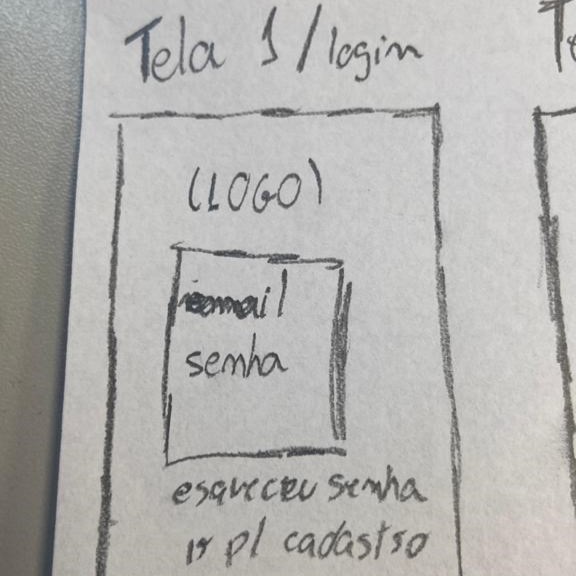 Tela 1/login
(LOGO)
email
senha
esqueceu senha
ir p/ cadastro